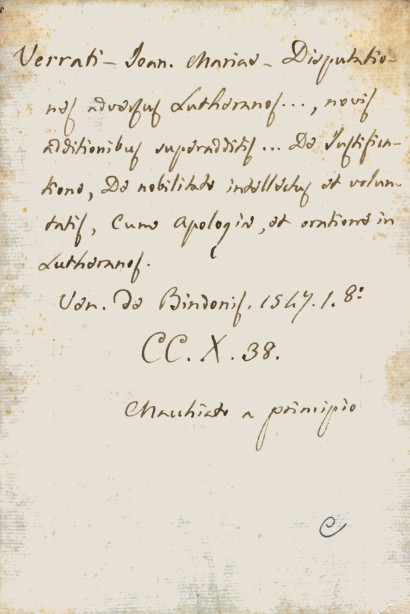 Verrati - Joan. Mariae - Disputatio-
nes adversus Lutheranos..., novis
additionibus superadditis... De Justifica-
tione, De nobilitate intellectus et volun-
tatis, Cum Apologia, et oratione in
Lutheranos.
Ven. de Bindonis. 1547. 1. 8:
CC. X. 38.
Macchiato a principio
C